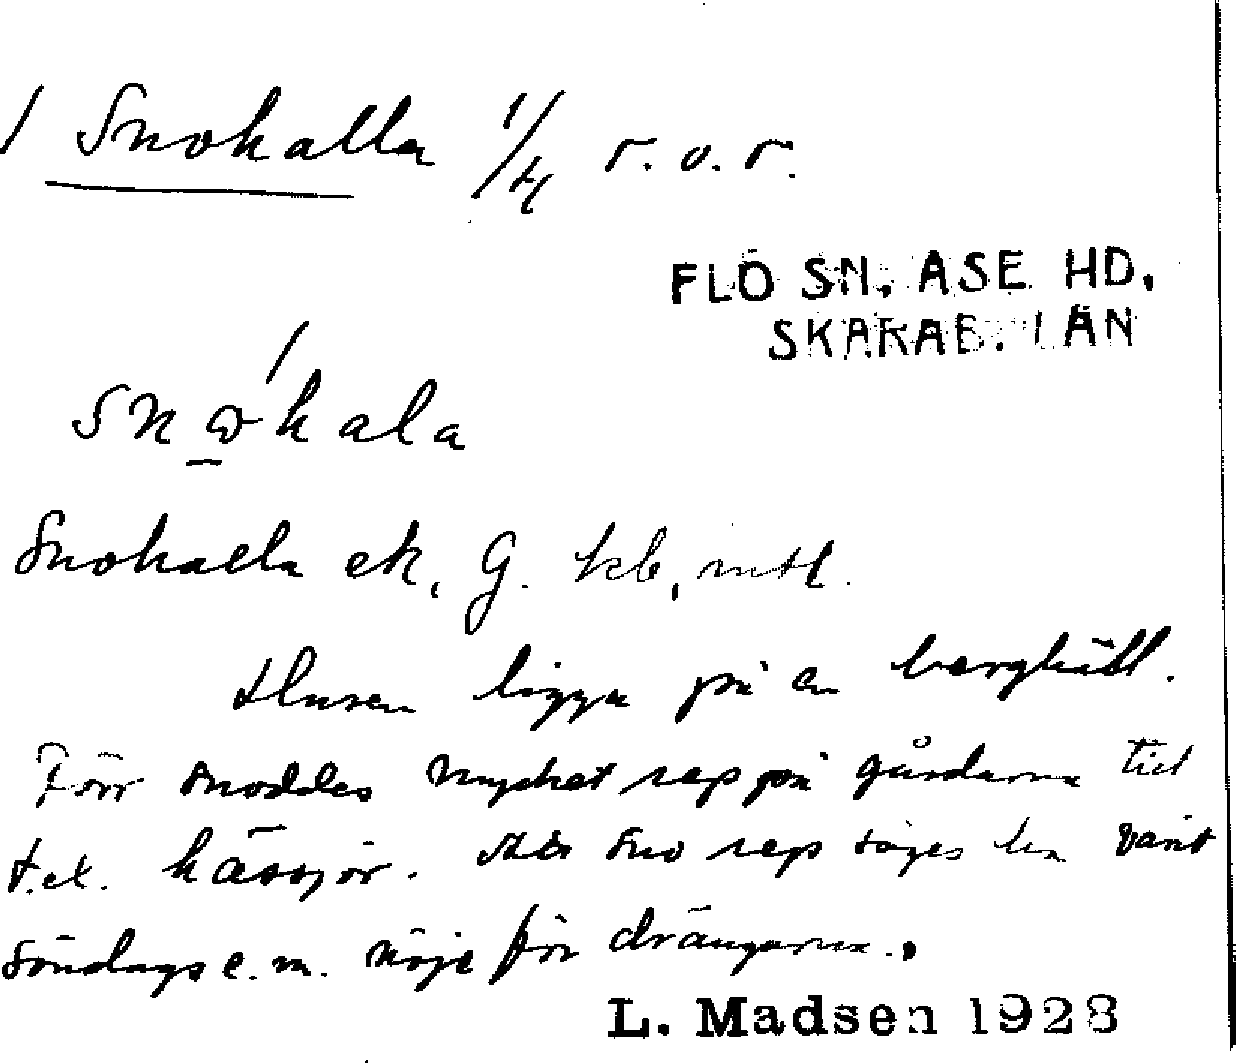 / Snokalla 1/4 r. o. r.
FLO SN. ÅSE HD.
SKARAB. LÄN
snώ̱kala
Snokalla ek, G. kb, mtl.
Husen ligga på en bergkätt.
Förr snoddes mycket rep på gårdarna till
t. ex. hässjor. Att sno rep säges ha varit
söndags e. m. nöje för drängarna.
L. Madsen 1928